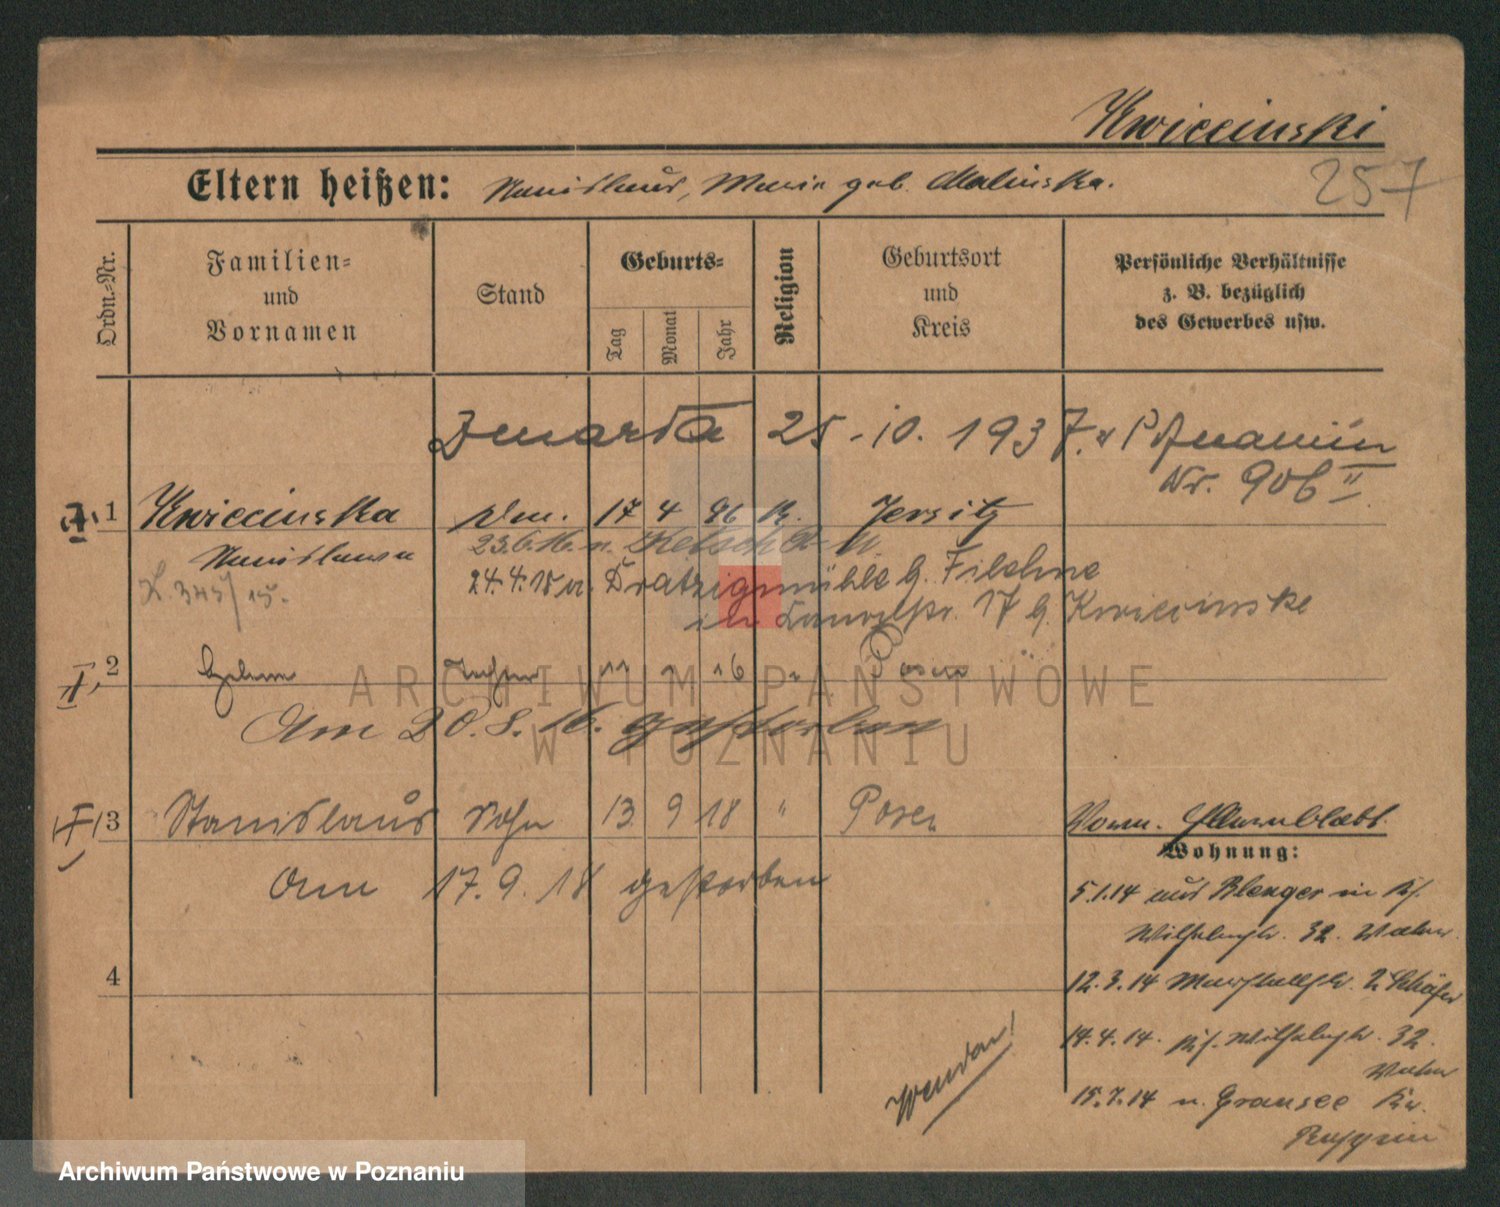 Kwiecinski
257
Eltern heißen: Stanislaus, Marie geb. Malinska.
Ordn.-Nr.
Familien-
und
Vornamen
Stand
Geburts-
Tag
Monat
Jahr
Religion
Geburtsort
und
Kreis
Persönliche Verhältnisse
z. B. bezüglich
des Gewerbes usw.
Zmarła 25.10.1937. w Poznaniu
Nr. 906 II
1 Kwiecinska 17 4 96 K. Jersitz
Stanislawa
L. 345/15.
23.6.16. n.
24.4.18 n. Dratzigmühle b. Filehne
17 b. Kwiecinske
2 Helene Tochter 11 16 " Posen
Am 20.8.16. gestorben
3 Stanislaus Sohn 13 9 18 " Posen
Am 17.9.18 gestorben
Wohnung:
5.1.14 aus in
32.
12.3.14 2 Schäfer
14.4.14. 32.
15.7.14 n. Gransee Kr.
Ruppin
4
Wenden!
ARCHIWUM PAŃSTWOWE
W POZNANIU
Archiwum Państwowe w Poznaniu